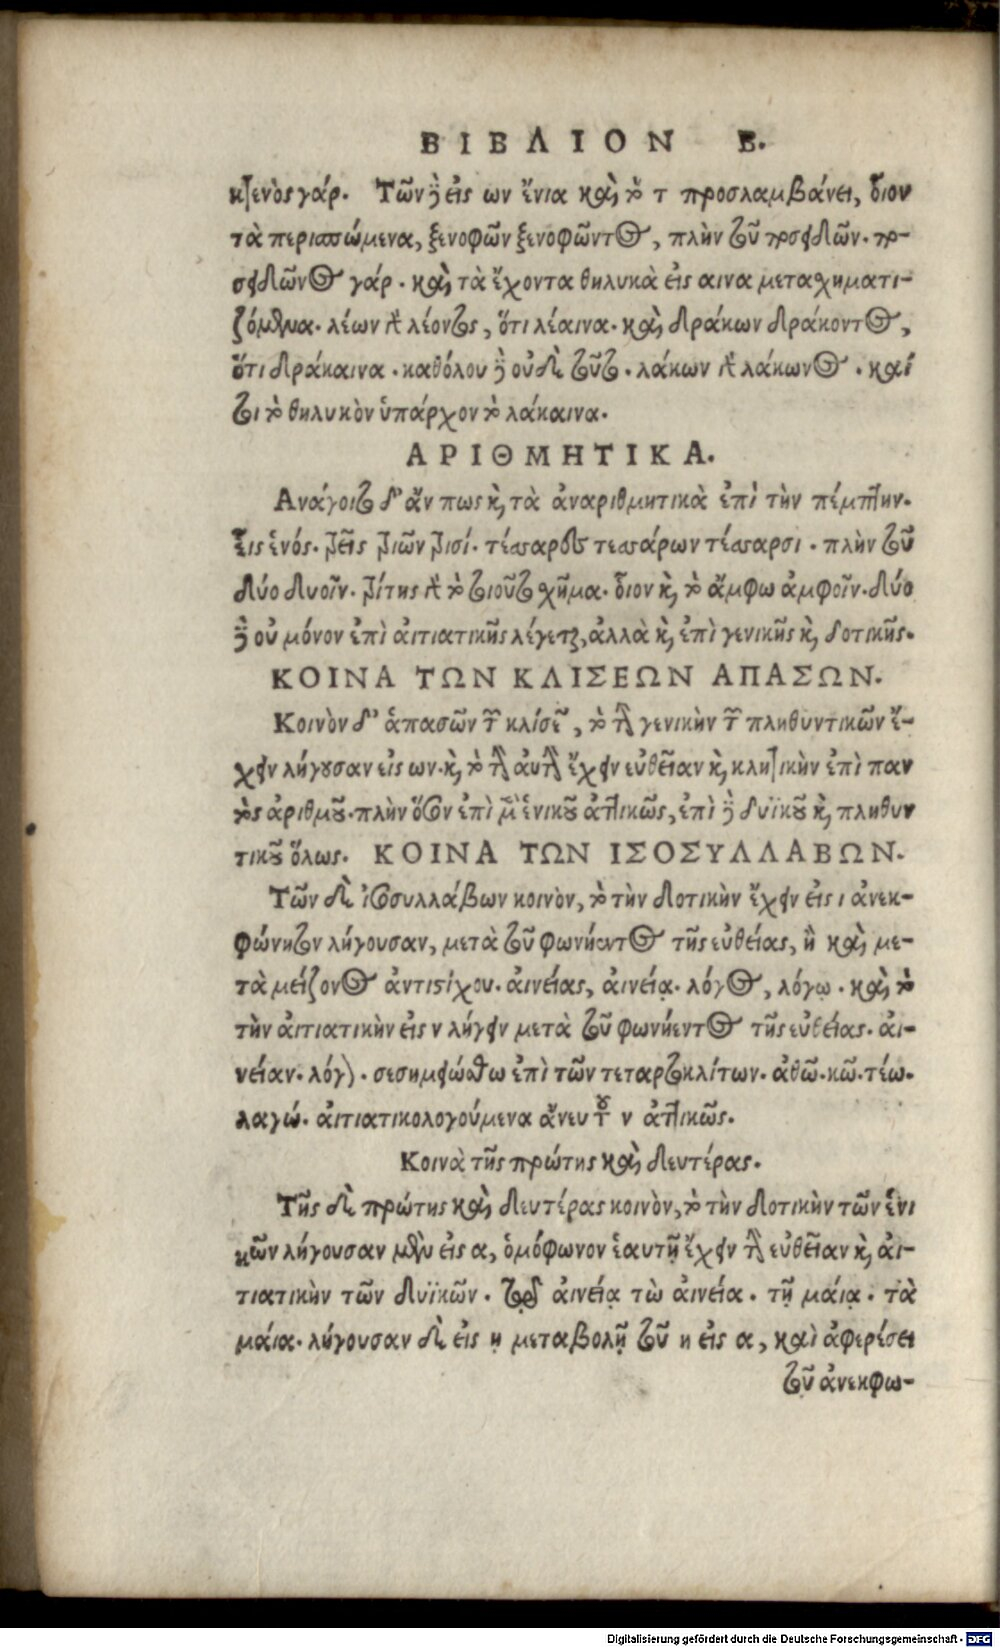 ΒΙΒΛΙΟΝ Β.
κτενὸς γάρ. Τῶν δὲ εἰς ων ἔνια καὶ τὸ τ προσλαμβάνει, οἷον
τὰ περισπώμενα, ξενοφῶν ξενοφῶντος, πλὴν τοῦ ποσειδῶν. πο-
σειδῶνος γάρ. καὶ τὰ ἔχοντα θηλυκὰ εἰς αινα μετασχηματι-
ζόμενα. λέων δὲ λέοντος, ὅτι λέαινα. καὶ δράκων δράκοντος,
ὅτι δράκαινα. καθόλου δὲ οὐδὲ τοῦτο. λάκων δὲ λάκωνος. καί
τοι τὸ θηλυκὸν ὑπάρχον τὸ λάκαινα.
ΑΡΙΘΜΗΤΙΚΑ.
Ανάγοιτο δ' ἄν πως καὶ τὰ ἀναριθμητικὰ ἐπὶ τὴν πέμπτην.
εἷς ἑνός. τρεῖς τριῶν τρισί. τέσσαρες τεσσάρων τέσσαρσι. πλὴν τοῦ
δύο δυοῖν. τρίτης δὲ τὸ τοιοῦτο σχῆμα. οἷον καὶ τὸ ἄμφω ἀμφοῖν. δύο
δὲ οὐ μόνον ἐπὶ αἰτιατικῆς λέγεται, ἀλλὰ καὶ ἐπὶ γενικῆς καὶ δοτικῆς.
ΚΟΙΝΑ ΤΩΝ ΚΛΙΣΕΩΝ ΑΠΑΣΩΝ.
Κοινὸν δ' ἁπασῶν τῶν κλίσεων, τὸ τὴν γενικὴν τῶν πληθυντικῶν ἔ-
χειν λήγουσαν εἰς ων. καὶ τὸ τὴν αὐτὴν ἔχειν εὐθεῖαν καὶ κλητικὴν ἐπὶ παν
τὸς ἀριθμοῦ. πλὴν ὅσον ἐπὶ μὲν ἑνικοῦ ἀττικῶς, ἐπὶ δὲ δυϊκοῦ καὶ πληθυν
τικοῦ ὅλως. ΚΟΙΝΑ ΤΩΝ ΙΣΟΣΥΛΛΑΒΩΝ.
Τῶν δὲ ἰσοσυλλάβων κοινὸν, τὸ τὴν δοτικὴν ἔχειν εἰς ι ἀνεκ-
φώνητον λήγουσαν, μετὰ τοῦ φωνήεντος τῆς εὐθείας, ἢ καὶ με-
τὰ μείζονος ἀντιστίχου. αἰνείας, αἰνείᾳ. λόγος, λόγῳ. καὶ τὸ
τὴν αἰτιατικὴν εἰς ν λήγειν μετὰ τοῦ φωνήεντος τῆς εὐθείας. αἰ-
νείαν. λόγον. σεσημειώσθω ἐπὶ τῶν τεταρτοκλίτων. ἀθῶ. κῶ. τέω.
λαγώ. αἰτιατικολογούμενα ἄνευ τοῦ ν ἀττικῶς.
Κοινὰ τῆς πρώτης καὶ δευτέρας.
Τῆς δὲ πρώτης καὶ δευτέρας κοινὸν, τὸ τὴν δοτικὴν τῶν ἑνι
κῶν λήγουσαν μὲν εἰς α, ὁμόφωνον ἑαυτῇ ἔχειν τὴν εὐθεῖαν καὶ αἰ-
τιατικὴν τῶν δυϊκῶν. αἰνείᾳ τὼ αἰνεία. τῇ μάιᾳ. τὰ
μάια. λήγουσαν δὲ εἰς ῃ μεταβολῇ τοῦ η εἰς α, καὶ ἀφερέσει
τοῦ ἀνεκφω-
Digitalisierung gefördert durch die Deutsche Forschungsgemeinschaft - DFG